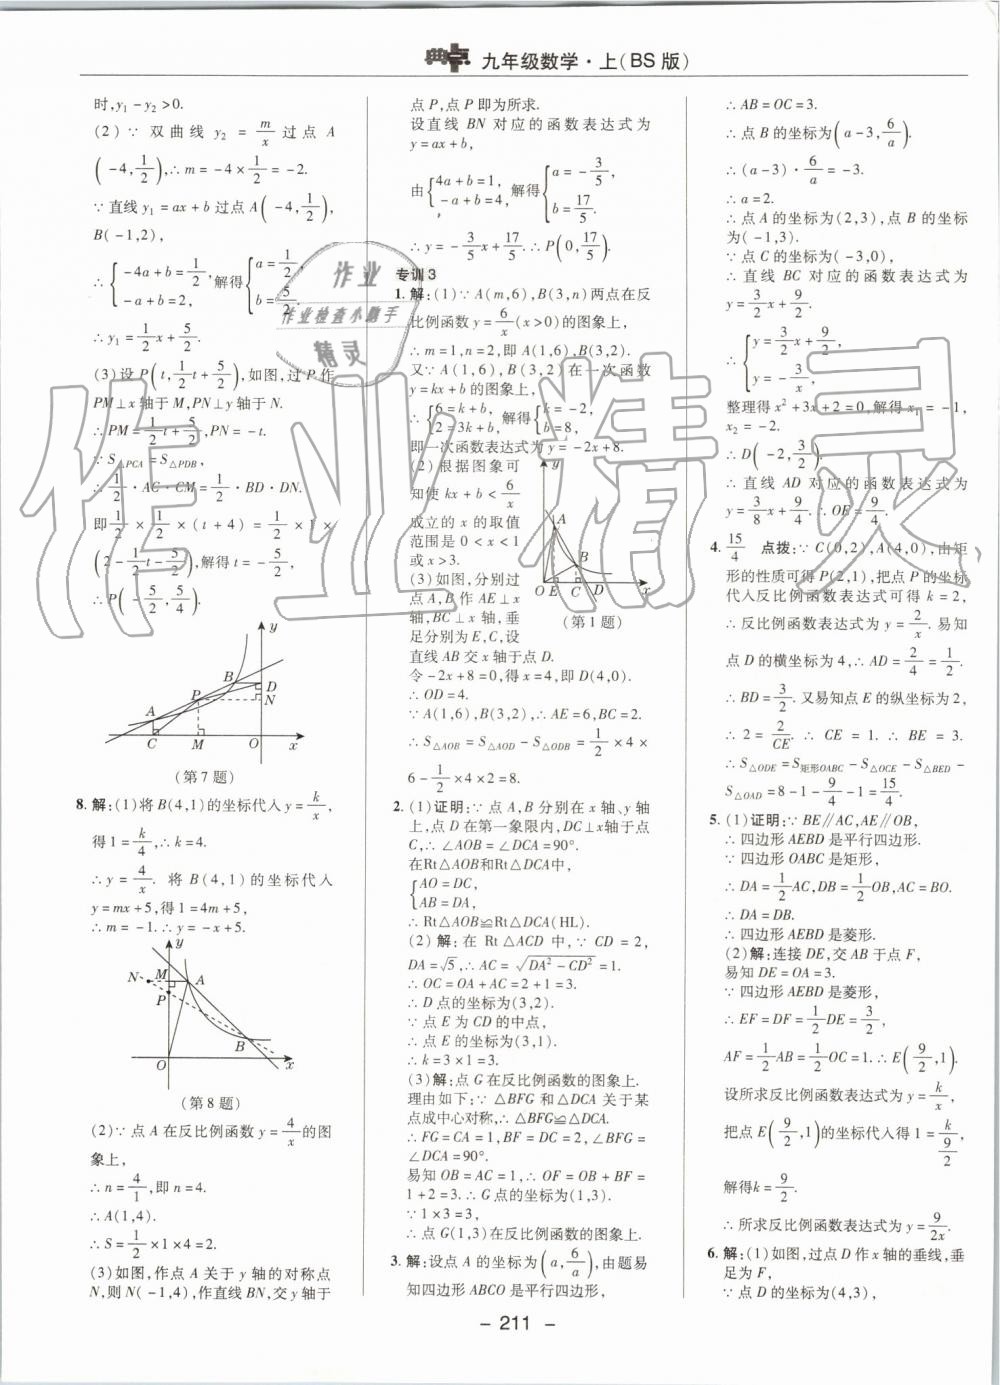 典中点 九年级数学·上(BS版)
时,y₁-y₂>0.
(2)∵ 双曲线 y₂=m/x 过点 A
(-4,1/2),∴m=-4×1/2=-2.
∵直线 y₁=ax+b 过点 A(-4,1/2),
B(-1,2),
∴{-4a+b=1/2, -a+b=2, 解得{a=1/2, b=5/2.
∴y₁=1/2x+5/2.
(3)设 P(t,1/2t+5/2),如图,过 P 作
PM⊥x 轴于 M,PN⊥y 轴于 N.
∴PM=1/2t+5/2,PN=-t.
∵S△PCA=S△PDB,
∴1/2·AC·CM=1/2·BD·DN.
即1/2×1/2×(t+4)=1/2×1×
(2-1/2t-5/2),解得 t=-5/2,
∴P(-5/2,5/4).
y
B
D
P
N
A
C M O x
(第7题)
8.解:(1)将 B(4,1)的坐标代入 y=k/x,
得 1=k/4,∴k=4.
∴y=4/x. 将 B(4,1)的坐标代入
y=mx+5,得 1=4m+5,
∴m=-1.∴y=-x+5.
y
N M A
P
B
O x
(第8题)
(2)∵点 A 在反比例函数 y=4/x 的图
象上,
∴n=4/1,即 n=4.
∴A(1,4).
∴S=1/2×1×4=2.
(3)如图,作点 A 关于 y 轴的对称点
N,则 N(-1,4),作直线 BN,交 y 轴于
点 P,点 P 即为所求.
设直线 BN 对应的函数表达式为
y=ax+b,
由{4a+b=1, -a+b=4, 解得{a=-3/5, b=17/5.
∴y=-3/5x+17/5.∴P(0,17/5).
专训3
1.解:(1)∵A(m,6),B(3,n)两点在反
比例函数 y=6/x(x>0)的图象上,
∴m=1,n=2,即 A(1,6),B(3,2).
又∵A(1,6),B(3,2)在一次函数
y=kx+b 的图象上,
∴{6=k+b, 2=3k+b, 解得{k=-2, b=8,
即一次函数表达式为 y=-2x+8.
(2)根据图象可
知使 kx+b<6/x
成立的 x 的取值
范围是 0<x<1
或 x>3.
(3)如图,分别过
点 A,B 作 AE⊥x
轴,BC⊥x 轴,垂
足分别为 E,C,设
直线 AB 交 x 轴于点 D.
y
A
B
O E C D x
(第1题)
令-2x+8=0,得 x=4,即 D(4,0).
∴OD=4.
∵A(1,6),B(3,2),∴AE=6,BC=2.
∴S△AOB=S△AOD-S△ODB=1/2×4×
6-1/2×4×2=8.
2.(1)证明:∵点 A,B 分别在 x 轴、y 轴
上,点 D 在第一象限内,DC⊥x轴于点
C,∴∠AOB=∠DCA=90°.
在Rt△AOB和Rt△DCA中,
{AO=DC, AB=DA,
∴Rt△AOB≌Rt△DCA(HL).
(2)解:在 Rt△ACD 中,∵CD=2,
DA=√5,∴AC=√(DA²-CD²)=1.
∴OC=OA+AC=2+1=3.
∴D点的坐标为(3,2).
∵点 E 为 CD 的中点,
∴点 E 的坐标为(3,1).
∴k=3×1=3.
(3)解:点 G 在反比例函数的图象上.
理由如下:∵△BFG 和△DCA 关于某
点成中心对称,∴△BFG≌△DCA.
∴FG=CA=1,BF=DC=2,∠BFG=
∠DCA=90°.
易知 OB=AC=1,∴OF=OB+BF=
1+2=3.∴G 点的坐标为(1,3).
∵1×3=3,
∴点 G(1,3)在反比例函数的图象上.
3.解:设点 A 的坐标为(a,6/a),由题易
知四边形 ABCO 是平行四边形,
∴AB=OC=3.
∴点 B 的坐标为(a-3,6/a).
∴(a-3)·6/a=-3.
∴a=2.
∴点 A 的坐标为(2,3),点 B 的坐标
为(-1,3).
∵点 C 的坐标为(-3,0),
∴直线 BC 对应的函数表达式为
y=3/2x+9/2.
∴{y=3/2x+9/2, y=-3/x.
整理得 x²+3x+2=0,解得 x₁=-1,
x₂=-2.
∴D(-2,3/2).
∴直线 AD 对应的函数表达式为
y=3/8x+9/4.∴OE=9/4.
4.15/4 点拨:∵C(0,2),A(4,0),由矩
形的性质可得 P(2,1),把点 P 的坐标
代入反比例函数表达式可得 k=2,
∴反比例函数表达式为 y=2/x.易知
点 D 的横坐标为 4,∴AD=2/4=1/2.
∴BD=3/2.又易知点 E 的纵坐标为2,
∴2=2/CE.∴CE=1.∴BE=3.
∴S△ODE=S矩形OABC-S△OCE-S△BED-
S△OAD=8-1-9/4-1=15/4.
5.(1)证明:∵BE∥AC,AE∥OB,
∴四边形 AEBD 是平行四边形.
∵四边形 OABC 是矩形,
∴DA=1/2AC,DB=1/2OB,AC=BO.
∴DA=DB.
∴四边形 AEBD 是菱形.
(2)解:连接 DE,交 AB 于点 F,
易知 DE=OA=3.
∵四边形 AEBD 是菱形,
∴EF=DF=1/2DE=3/2,
AF=1/2AB=1/2OC=1.∴E(9/2,1).
设所求反比例函数表达式为 y=k/x,
把点 E(9/2,1)的坐标代入得 1=k/(9/2),
解得k=9/2.
∴所求反比例函数表达式为 y=9/2x.
6.解:(1)如图,过点 D 作 x 轴的垂线,垂
足为 F,
∵点 D 的坐标为(4,3),
- 211 -
作业
作业检查小题手
精灵
作业精灵